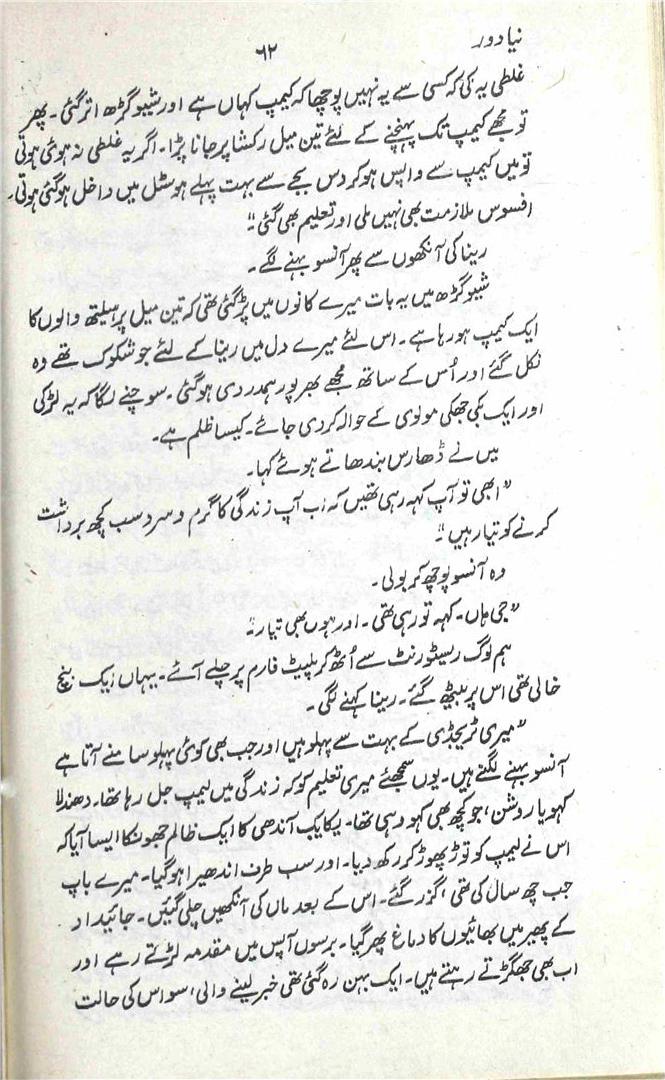 نیا دور
۶۲
غلطی یہ کی کہ کسی سے یہ نہیں پوچھا کہ کیمپ کہاں ہے اور شیوگڑھ اتر گئی۔ پھر
تو مجھے کیمپ تک پہنچنے کے لئے تین میل رکشا پر جانا پڑا۔ اگر یہ غلطی نہ ہوئی ہوتی
تو میں کیمپ سے واپس ہو کر دس بجے سے بہت پہلے ہوسٹل میں داخل ہو گئی ہوتی۔
افسوس ملازمت بھی نہیں ملی اور تعلیم بھی گئی"
رینا کی آنکھوں سے پھر آنسو بہنے لگے۔
شیوگڑھ میں یہ بات میرے کانوں میں پڑ گئی تھی کہ تین میل پر ہیلتھ والوں کا
ایک کیمپ ہو رہا ہے۔ اس لئے میرے دل میں رینا کے لئے جو شکوک تھے وہ
نکل گئے اور اُس کے ساتھ مجھے بھرپور ہمدردی ہو گئی۔ سوچنے لگا کہ یہ لڑکی
اور ایک جھکی مولوی کے حوالہ کر دی جائے۔ کیسا ظلم ہے۔
میں نے ڈھارس بندھاتے ہوئے کہا۔
"ابھی تو آپ کہہ رہی تھیں کہ اب آپ زندگی کا گرم و سرد سب کچھ برداشت
کرنے کو تیار ہیں"۔
وہ آنسو پوچھ کر بولی۔
"جی ہاں۔ کہہ تو رہی تھی۔ اور ہوں بھی تیار"۔
ہم لوگ ریسٹورنٹ سے اُٹھ کر پلیٹ فارم پر چلے آئے۔ یہاں ایک بینچ
خالی تھی اس پر بیٹھ گئے۔ رینا کہنے لگی۔
"میری ٹریجڈی کے بہت سے پہلو ہیں اور جب بھی کوئی پہلو سامنے آتا ہے
آنسو بہنے لگتے ہیں۔ یوں سمجھئے میری تعلیم کو کہ زندگی میں لیمپ جل رہا تھا۔ دھندلا
کہو یا روشن، جو کچھ بھی کہو وہی تھا۔ یکایک آندھی کا ایک ظالم جھونکا ایسا آیا کہ
اس نے لیمپ کو توڑ پھوڑ کر رکھ دیا۔ اور سب طرف اندھیرا ہو گیا۔ میرے باپ
جب چھ سال کی تھی، گزر گئے۔ اس کے بعد ماں کی آنکھیں چلی گئیں۔ جائیداد
کے پھیر میں بھائیوں کا دماغ پھر گیا۔ برسوں آپس میں مقدمہ لڑتے رہے اور
اب بھی جھگڑتے رہتے ہیں۔ ایک بہن رہ گئی تھی خبر لینے والی، سو اس کی حالت